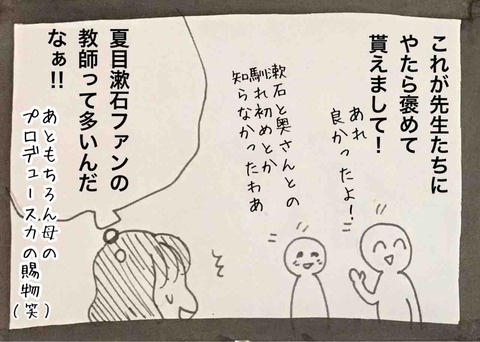 これが先生たちに
やたら褒めて
貰えまして!
あれ
良かったよ!
漱石と奥さんとの
馴れ初めとか
知らなかったわあ
夏目漱石ファンの
教師って多いんだ
なぁ!!
あともちろん母の
プロデュース力の賜物(笑)